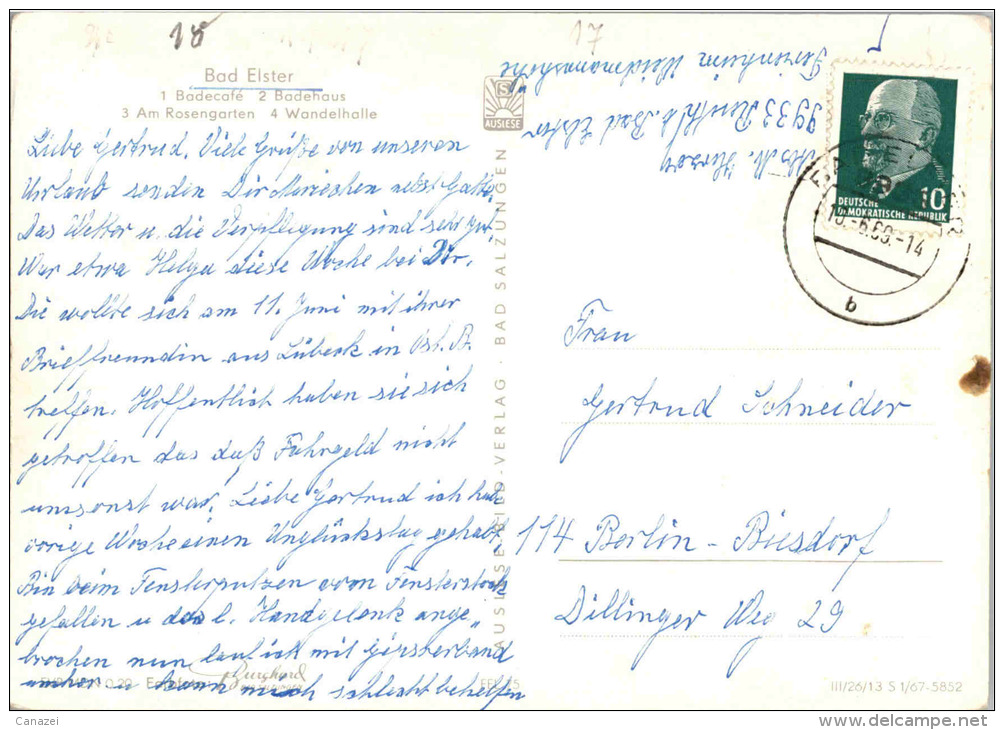 18
17
Bad Elster
1 Badecafé 2 Badehaus
3 Am Rosengarten 4 Wandelhalle
Liebe Gertrud. Viele Grüße von unseren
Urlaub senden Dir Mariechen nebst Gatte.
Das Wetter u. die Verpflegung sind sehr gut.
War etwa Helga diese Woche bei Dir.
Die wollte sich am 11. Juni mit ihrer
Brieffreundin aus Lübeck in Ost. B.
treffen. Hoffentlich haben sie sich
getroffen das daß Fahrgeld nicht
umsonst war. Liebe Gertrud ich hab
vorige Woche einen Unglückstag gehabt.
Bin beim Fensterputzen vom Fensterstock
gefallen u das l. Handgelenk ange„
brochen nun lauf ich mit Gipsverband
umher u kann mich schlecht behelfen
AUSLESE
AUSLESE-BILD-VERLAG · BAD SALZUNGEN
M. Herzog
9933 Bad Elster
Ferienheim Weidmannsruhe
DEUTSCHE
DEMOKRATISCHE REPUBLIK
10
-6.69.-14
b
Frau
Gertrud Schneider
114 Berlin-Biesdorf
Dillinger Weg 29
0,20
Burghard
III/26/13 S 1/67-5852
Canazei
www.delcampe.net